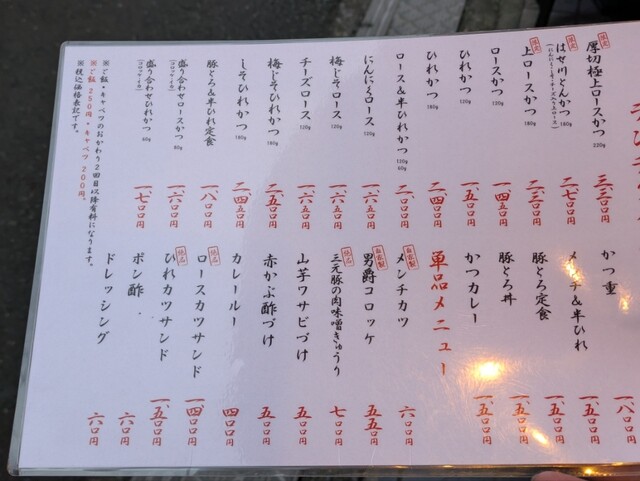 限定
厚切極上ロースかつ 220g 三、三〇〇円
限定
はせ川とんかつ 180g 二、七〇〇円
限定
上ロースかつ 180g 二、三〇〇円
ロースかつ 120g 一、四五〇円
ひれかつ 120g 一、五〇〇円
ひれかつ 180g 二、四〇〇円
ロース&半ひれかつ 120g 60g 二、〇〇〇円
にんにくロース 120g 一、六五〇円
梅じそロース 120g 一、六五〇円
チーズロース 120g 一、六五〇円
梅じそひれかつ 180g 二、五〇〇円
しそひれかつ 180g 二、四五〇円
豚とろ&半ひれ定食 一、八〇〇円
盛り合わせロースかつ 80g
(コロッケ・イカ)
盛り合わせひれかつ 60g
(コロッケ・イカ) 一、七〇〇円
※ご飯・キャベツのおかわり2回目以降有料になります。
※ご飯 250円・キャベツ 200円。
※税込価格表記です。
かつ重 一、八〇〇円
メンチ&半ひれ
豚とろ定食 一、五〇〇円
豚とろ丼 一、五〇〇円
かつカレー 一、五〇〇円
単品メニュー
自家製
メンチカツ 六〇〇円
自家製
男爵コロッケ 五五〇円
絶品
三元豚の肉味噌きゅうり 七〇〇円
山芋ワサビづけ 五〇〇円
赤かぶ酢づけ 五〇〇円
カレールー 四〇〇円
絶品
ロースカツサンド 一、四〇〇円
絶品
ひれカツサンド 一、五〇〇円
ポン酢 六〇円
ドレッシング 六〇円